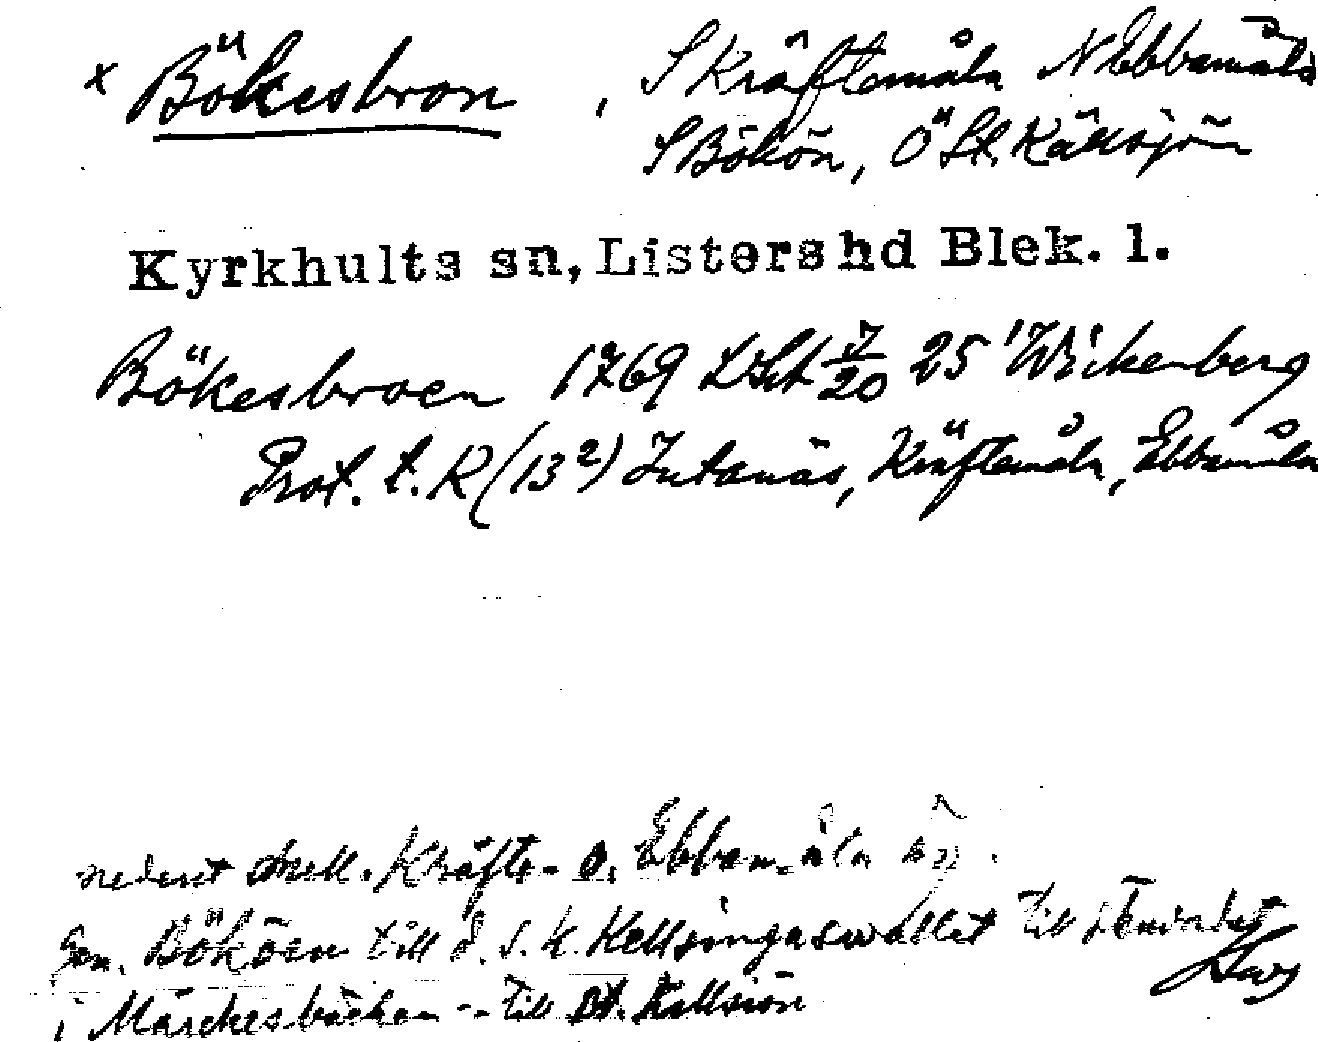 x Bökesbron, S Kräftemåla N Ebbamåla
S Bökön, Ö St. Källsjön
Kyrkhults sn, Listers hd Blek. l.
Bökesbroen 1769 LSA 7/20 25 Wickenberg
Prot. t. R (13²) Jutanäs, Kräftemåla, Ebbamåla
mell. Kräfte- o. Ebbamåla
gen. Bököen till d. s. k. Kellsingaswallet till
i Marckesbäcken -- till St. Källsiön